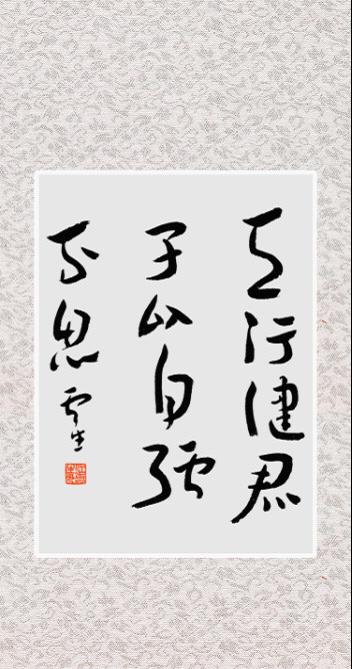 天行健君
子以自强
不息